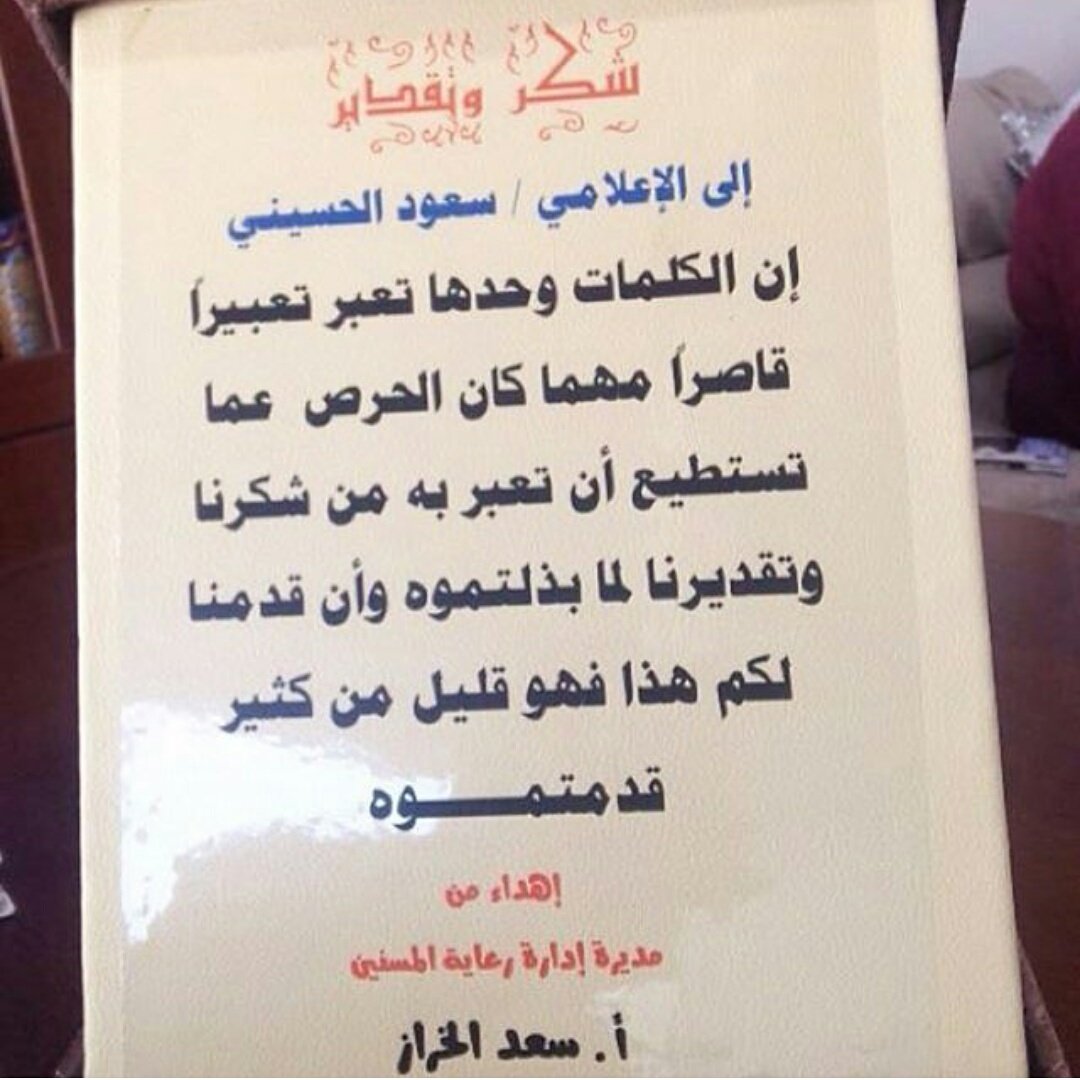 شكر وتقدير
إلى الإعلامي / سعود الحسيني
إن الكلمات وحدها تعبر تعبيراً
قاصراً مهما كان الحرص عما
تستطيع أن تعبر به من شكرنا
وتقديرنا لما بذلتموه وأن قدمنا
لكم هذا فهو قليل من كثير
قدمتمـــــوه
إهداء من
مديرة إدارة رعاية المسنين
أ. سعد الخراز